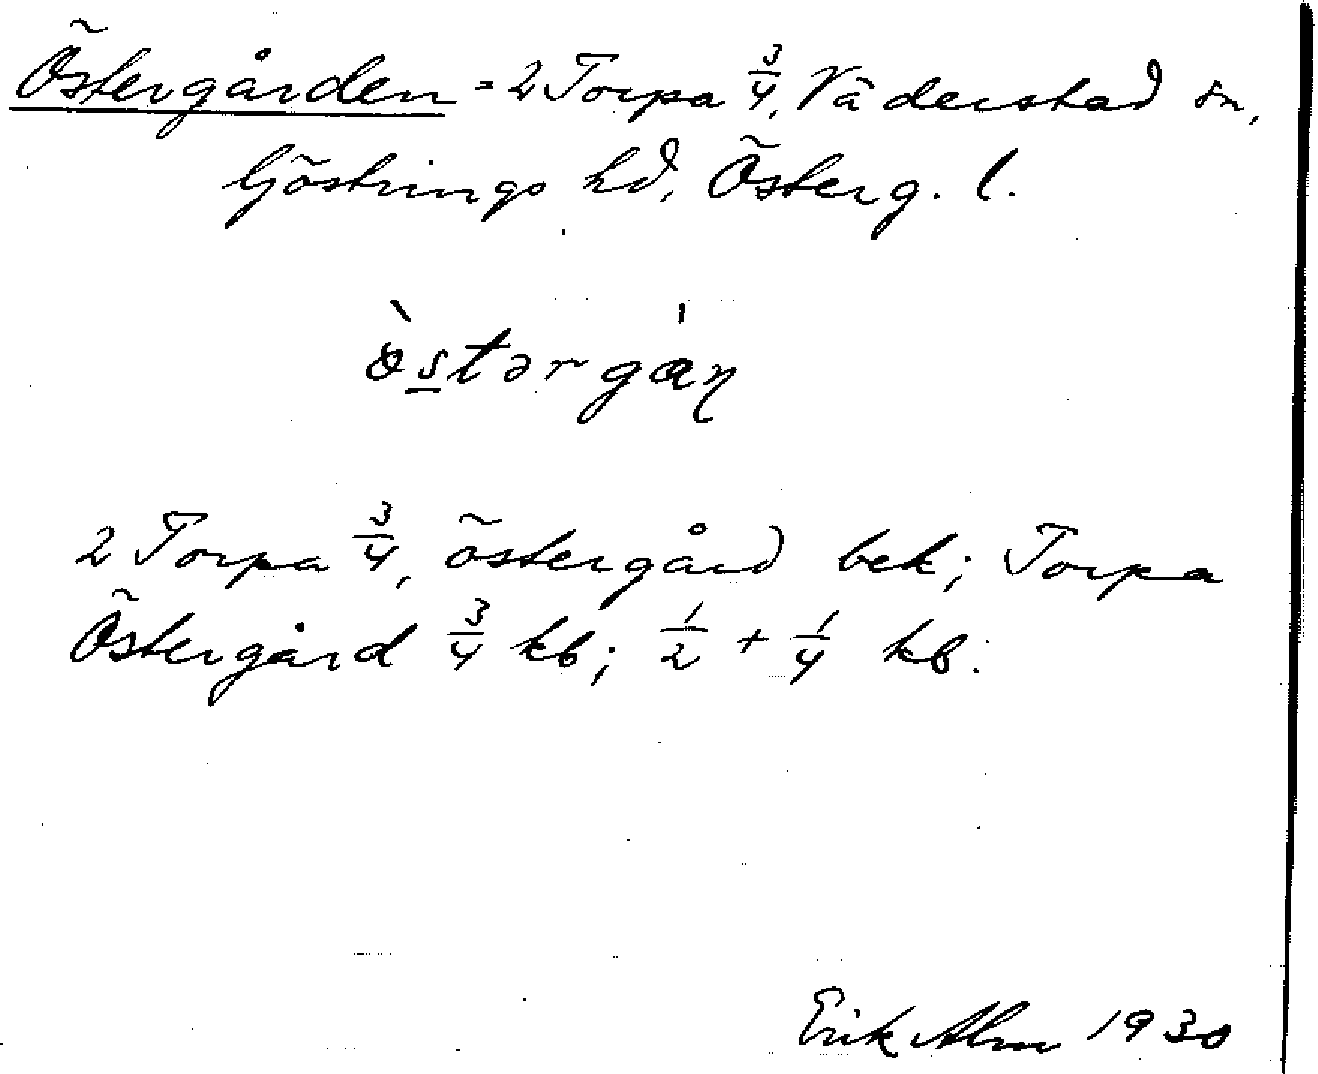 Östergården = 2 Torpa 3/4, Väderstad sn,
Göstrings hd, Österg. l.
ə̀stərgɑ̍ɳ
2 Torpa 3/4, östergård bek; Torpa
Östergård 3/4 kb; 1/2 + 1/4 kb.
Erik Alm 1930